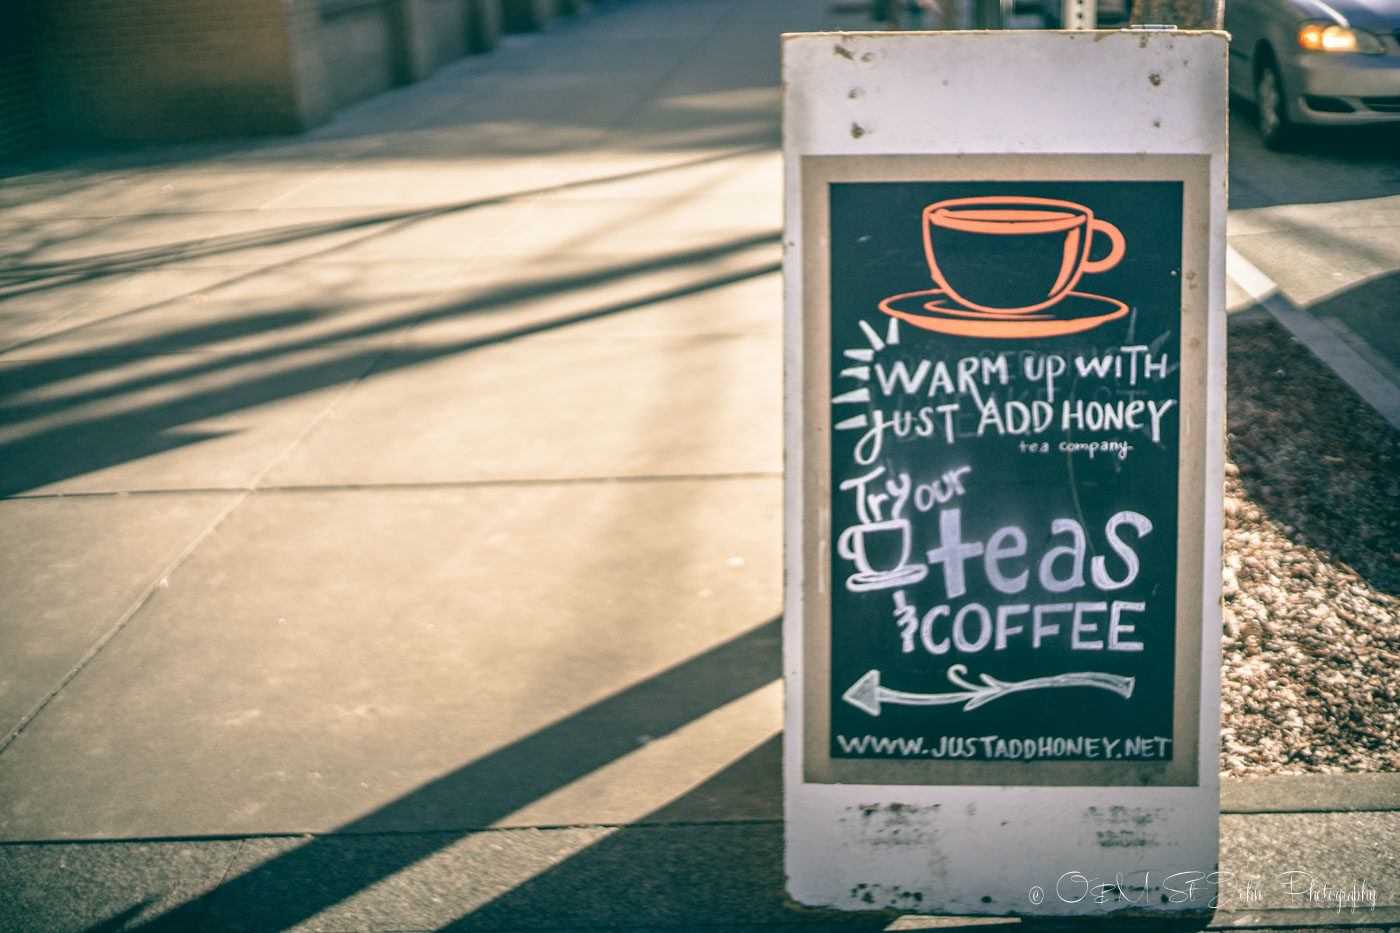 WARM UP WITH
JUST ADD HONEY
tea company
Try our
teas
& COFFEE
WWW.JUSTADDHONEY.NET
© O&M St John Photography